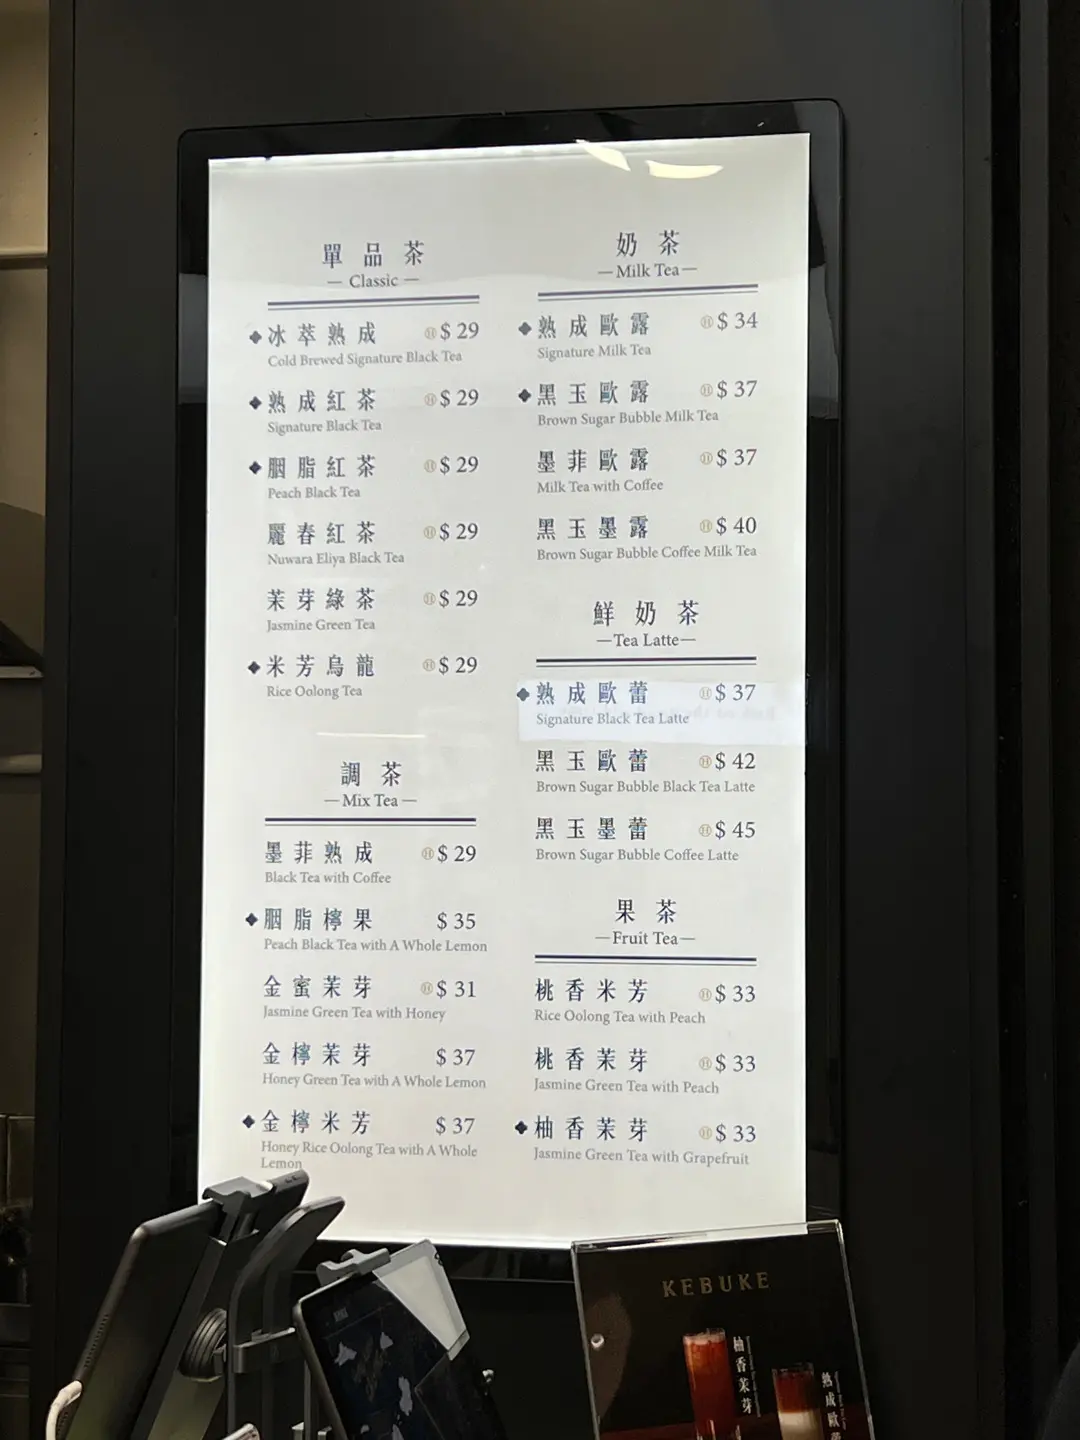 單品茶
— Classic —
冰萃熟成 Ⓗ $ 29
Cold Brewed Signature Black Tea
熟成紅茶 Ⓗ $ 29
Signature Black Tea
胭脂紅茶 Ⓗ $ 29
Peach Black Tea
麗春紅茶 Ⓗ $ 29
Nuwara Eliya Black Tea
茉芽綠茶 Ⓗ $ 29
Jasmine Green Tea
米芳烏龍 Ⓗ $ 29
Rice Oolong Tea
調茶
— Mix Tea —
墨菲熟成 Ⓗ $ 29
Black Tea with Coffee
胭脂檸果 $ 35
Peach Black Tea with A Whole Lemon
金蜜茉芽 Ⓗ $ 31
Jasmine Green Tea with Honey
金檸茉芽 $ 37
Honey Green Tea with A Whole Lemon
金檸米芳 $ 37
Honey Rice Oolong Tea with A Whole
Lemon
奶茶
— Milk Tea —
熟成歐露 Ⓗ $ 34
Signature Milk Tea
黑玉歐露 Ⓗ $ 37
Brown Sugar Bubble Milk Tea
墨菲歐露 Ⓗ $ 37
Milk Tea with Coffee
黑玉墨露 Ⓗ $ 40
Brown Sugar Bubble Coffee Milk Tea
鮮奶茶
— Tea Latte —
熟成歐蕾 Ⓗ $ 37
Signature Black Tea Latte
黑玉歐蕾 Ⓗ $ 42
Brown Sugar Bubble Black Tea Latte
黑玉墨蕾 Ⓗ $ 45
Brown Sugar Bubble Coffee Latte
果茶
— Fruit Tea —
桃香米芳 Ⓗ $ 33
Rice Oolong Tea with Peach
桃香茉芽 Ⓗ $ 33
Jasmine Green Tea with Peach
柚香茉芽 Ⓗ $ 33
Jasmine Green Tea with Grapefruit
KEBUKE
柚香茉芽
熟成歐蕾